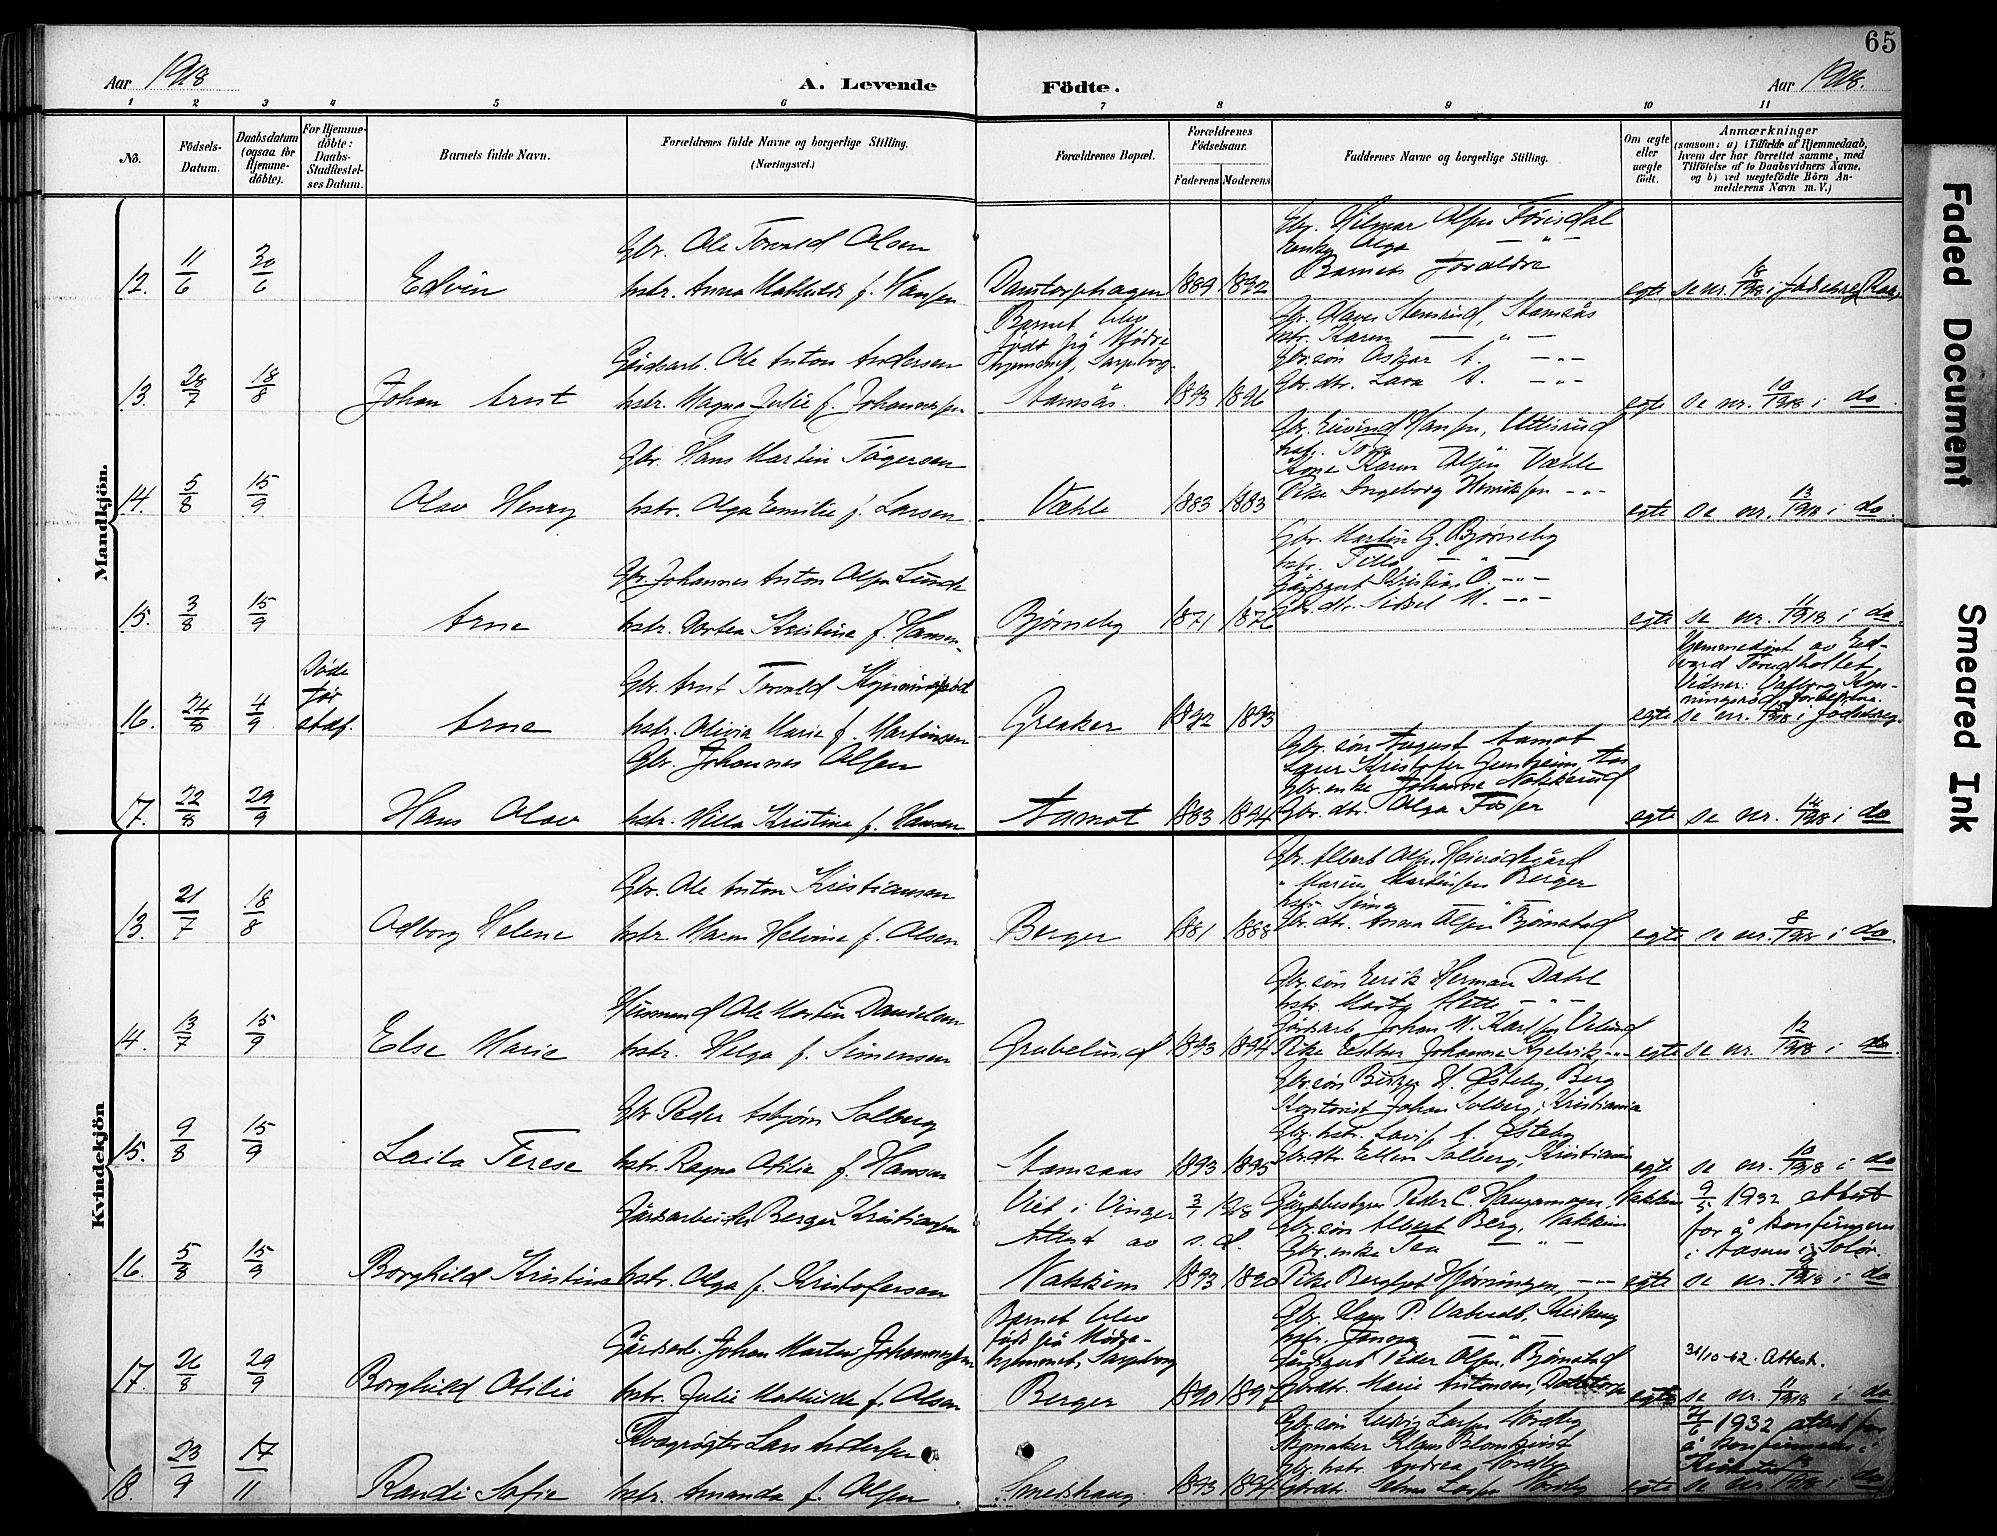 65
Aar 1918
A. Levende
Födte.
Aar 1918.
1 2 3 4 5 6 7 8 9 10 11
No.
Födsels-
Datum.
Daabsdatum
(ogsaa for
Hjemme-
döbte).
For Hjemme-
döbte:
Daabs-
Stadfæstel-
ses Datum.
Barnets fulde Navn.
Forældrenes fulde Navne og borgerlige Stilling.
(Næringsvei.)
Forældrenes Bopæl.
Forældrenes
Födselsaar.
Faderens
Moderens
Faddernes Navne og borgerlige Stilling.
Om ægte
eller
uægte
födt.
Anmærkninger
(saasom: a) i Tilfælde af Hjemmedaab,
hvem der har forrettet samme, med
Tilföielse af to Daabsvidners Navne,
og b) ved uægtefödte Börn An-
melderens Navn m. V.)
Mandkjön.
12. 11/6 30/6 Edvin
Gbr. Ole Torvald Olsen
hstr. Anna Mathilde f. Hansen
Damtorphagen 1889 1892
Gbr. Hilmar Olsen Torisdal
Olga — " —
Barnets Forældre
egte se nr. 18/1918 i fødselsreg.
13. 28/7 18/8 Johan Arnt
Gårdsarb. Ole Anton Andersen
hstr. Magna Julie f. Johannessen
Barnet blev
født på Mødre-
hjemmet, Sarpsborg.
Stamsås. 1893 1896
Stensrud, Stamsås
hstr. Karen — " —
Gbr.søn Oskar A. — " —
Gbr.dtr. Lara A. — " —
egte se nr. 10/1918 i do.
14. 5/8 15/9 Olav Henry
Gbr. Hans Martin Tøgersen
hstr. Olga Emilie f. Larsen
Væhle 1883 1883
Gbr. Eivind Hansen,
hstr. Tora
Kone Karen Olsen Væhle
Pike Ingeborg Henriksen — " —
egte se nr. 13/1918 i do.
15. 3/8 15/9 Arne
Gbr. Johannes Anton Olsen Lunde
hstr. Dortea Kristine f. Hansen
Bjørneby 1871 1876
Gbr. Martin G. Bjørneby
hstr. Tilla — " —
Gårdgut Kristian O. — " —
Gbr.dtr. Sidsel M. — " —
egte se nr. 11/1918 i do.
16. 24/8 4/9
Døde
før
stadf.
Arne
Gbr. Arnt Torvald
hstr. Olivia Marie f. Martinsen
Greaker 1892 1893
Hjemmedøpt av Ed-
vard Torudholtet,
Vidner: Valborg
egte se nr. i fødselsreg.
17. 22/8 29/9 Hans Olav
Gbr. Johannes Olsen
hstr. Hilla Kristine f. Hansen
Aamot 1883 1894
Gbr.søn August Aamot
Lærer Kristofer
Gbr.enke Johanne Nakkerud
Gbr.dtr. Olga Fosser
egte se nr. 14/1918 i do
Kvindekjön
13. 21/7 18/8 Odborg Helene
Gbr. Ole Anton Kristiansen
hstr. Maren Helvine f. Olsen
Berger 1881 1888
Gbr. Albert Olsen
" Marius Martinsen Berger
Gbr.dtr. Anna Olsen Bjørnstad
egte se nr. 8/1918 i do.
14. 13/7 15/9 Else Marie
Husmand Ole Martin Danielsen
hstr. Helga f. Simensen
Grubelund 1893 1894
Gbr.søn Erik Herman Dahl
hstr. Mette — " —
Gårdsarb. Johan M. Karlsen
Pike Esther Johanne — " —
egte se nr. 12/1918 i do.
15. 9/8 15/9 Laila Terese
Gbr. Peder Asbjørn Solberg
hstr. Ragna Otilie f. Hansen
Stamsaas 1893 1895
Gbr.søn Birger H. Østeby, Berg
Kontorist Johan Solberg, Kristiania
Gbr.hstr. Østeby
Gbr.dtr. Ellen Solberg, Kristiania
egte se nr. 10/1918 i do
16. 5/8 15/9 Borghild Kristine
Gårdsarbeider Berger Kristiansen
hstr. Olga f. Kristofersen
Viet i Vinger 3/7 1918
Attest av s. d.
Nakkim 1893 1890
Peder C. Haugermoen, Nakkim
Gbr.søn Albert Berg, Nakkim
Gbr.enke Tea — " —
Pike Bergljot — " —
9/5 1932 attest
for å konfirmeres
i Aasnes i Solør.
egte se nr. 9/1918 i do
17. 26/8 29/9 Borghild Otilie
Gårdsarb. Johan Martin Johannessen
hstr. Julie Mathilde f. Olsen
Barnet blev
født på Mødre-
hjemmet, Sarpsborg
Berger 1890 1897
Gbr. Hans P.
hstr. Janora — " —
Gårdgut Peder Olsen, Bjørnstad
Gbr.dtr. Marie Antonsen,
31/10-62. Attest.
egte se nr. 11/1918 i do
18. 23/9 17/11 Randi Sofie
Kvægrøgter Lars Andersen
hstr. Amanda f. Olsen
Smedshaug 1893 1894
Gbr.søn Ludvig Larsen Noreby
Skomaker Klaus Blomkvist
Gbr.hstr. Andrea Noreby
Gbr.dtr. Larsen Noreby
1932 attest for
å konfirmeres i
egte se nr. i do
Faded Document
Smeared Ink